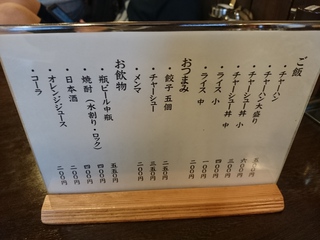 ご飯
・チャーハン 五〇〇円
・チャーハン大盛り 六〇〇円
・チャーシュー丼 中
・チャーシュー丼 小 三〇〇円
・ライス 小 一〇〇円
・ライス 中 二〇〇円
おつまみ
・餃子 五個 二五〇円
・チャーシュー 三五〇円
・メンマ
お飲物
・瓶ビール中瓶 五五〇円
・焼酎(水割り・ロック) 四〇〇円
・日本酒 四〇〇円
・オレンジジュース 二〇〇円
・コーラ 二〇〇円